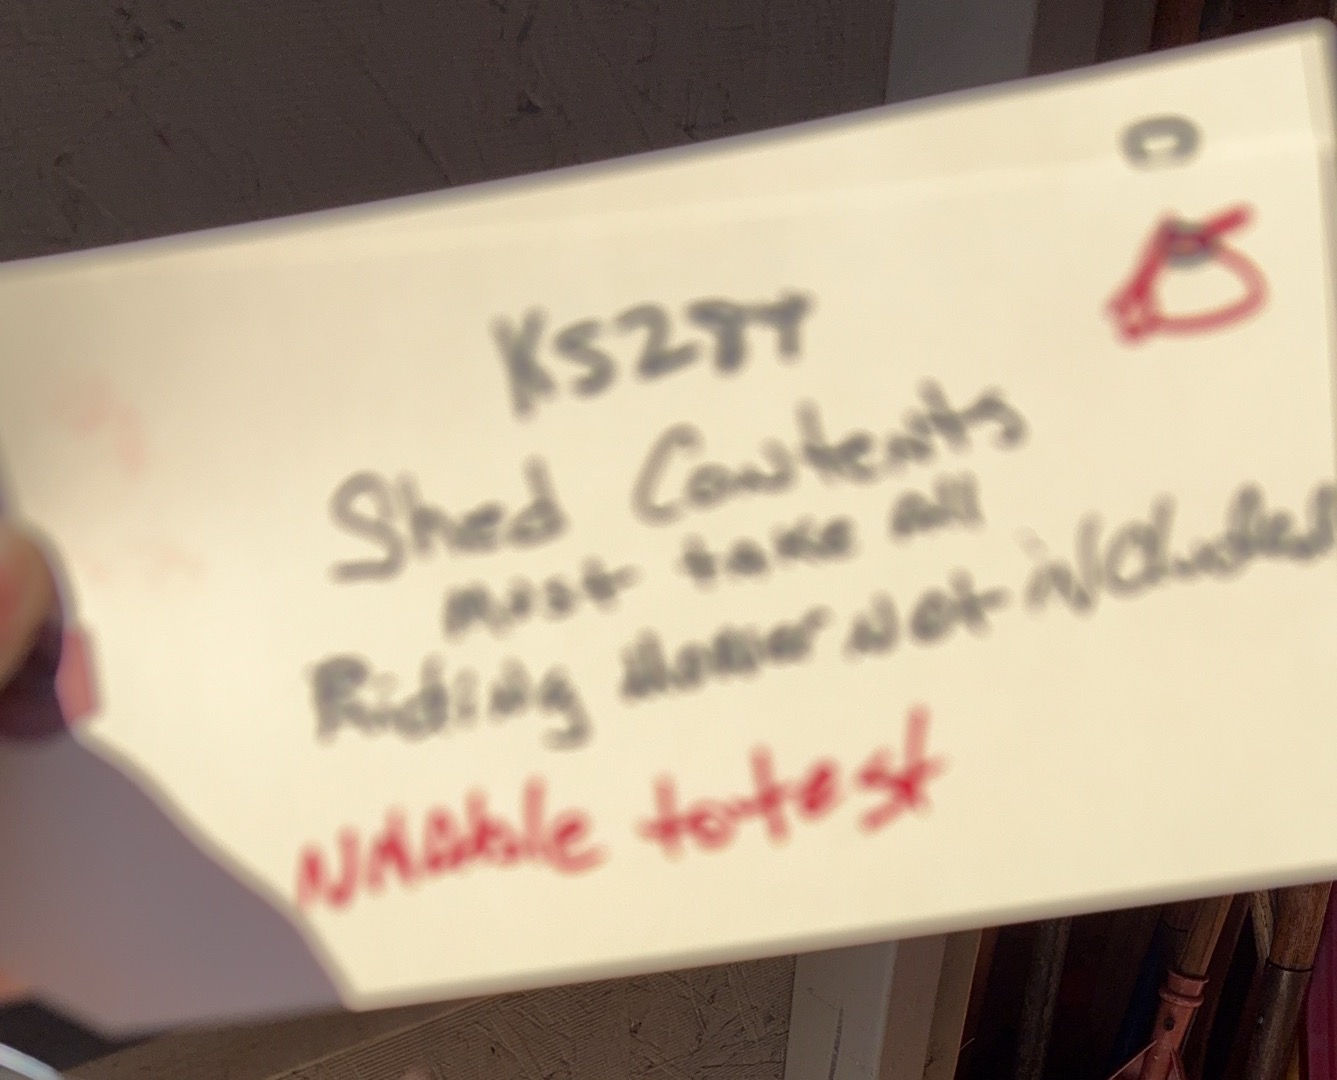 Shed Contents
must take all
Riding Mower Not iNCluded
to test